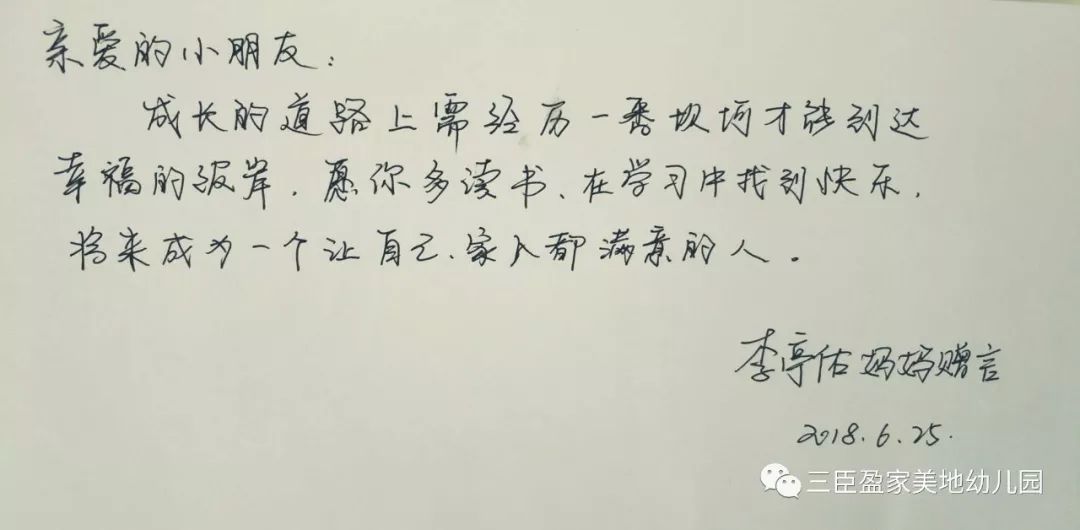 亲爱的小朋友：
成长的道路上需经历一番坎坷才能到达
幸福的彼岸，愿你多读书、在学习中找到快乐，
将来成为一个让自己、家人都满意的人。
李亭佑妈妈赠言
2018.6.25.
三臣盈家美地幼儿园